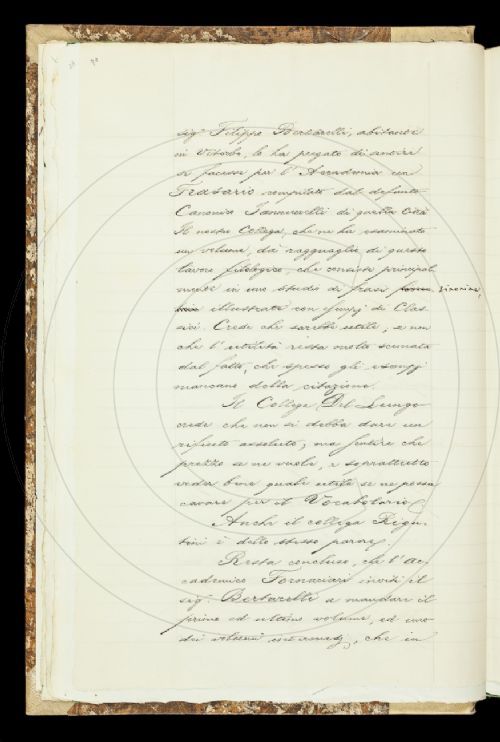 sig.r Filippo Bertarelli, abitante
in Viterbo, lo ha pregato di sentire
se facesse per l'Accademia un
Frasario compilato dal defunto
Canonico Jannuccelli di quella Città
Il nostro Collega, che ne ha esaminato
un volume, dà ragguaglio di questo
lavoro filologico, che consiste principal
mente in uno studio di frasi sinonime,
illustrate con esempj di Clas
sici. Crede che sarebbe utile, se non
che l'utilità resta molto scemata
dal fatto, che spesso gli esempj
mancano della citazione.
Il Collega Del Lungo
crede che non si debba dare un
rifiuto assoluto, ma sentire che
prezzo se ne vuole, e soprattutto
veder bene quale utile se ne possa
cavare per il Vocabolario.
Anche il collega Rigu-
tini è dello stesso parere.
Resta concluso, che l'ac-
cademico Fornaciari inviti il
sig.r Bertarelli a mandare il
primo ed ultimo volume, ed uno
dei volumi intermedj, che in